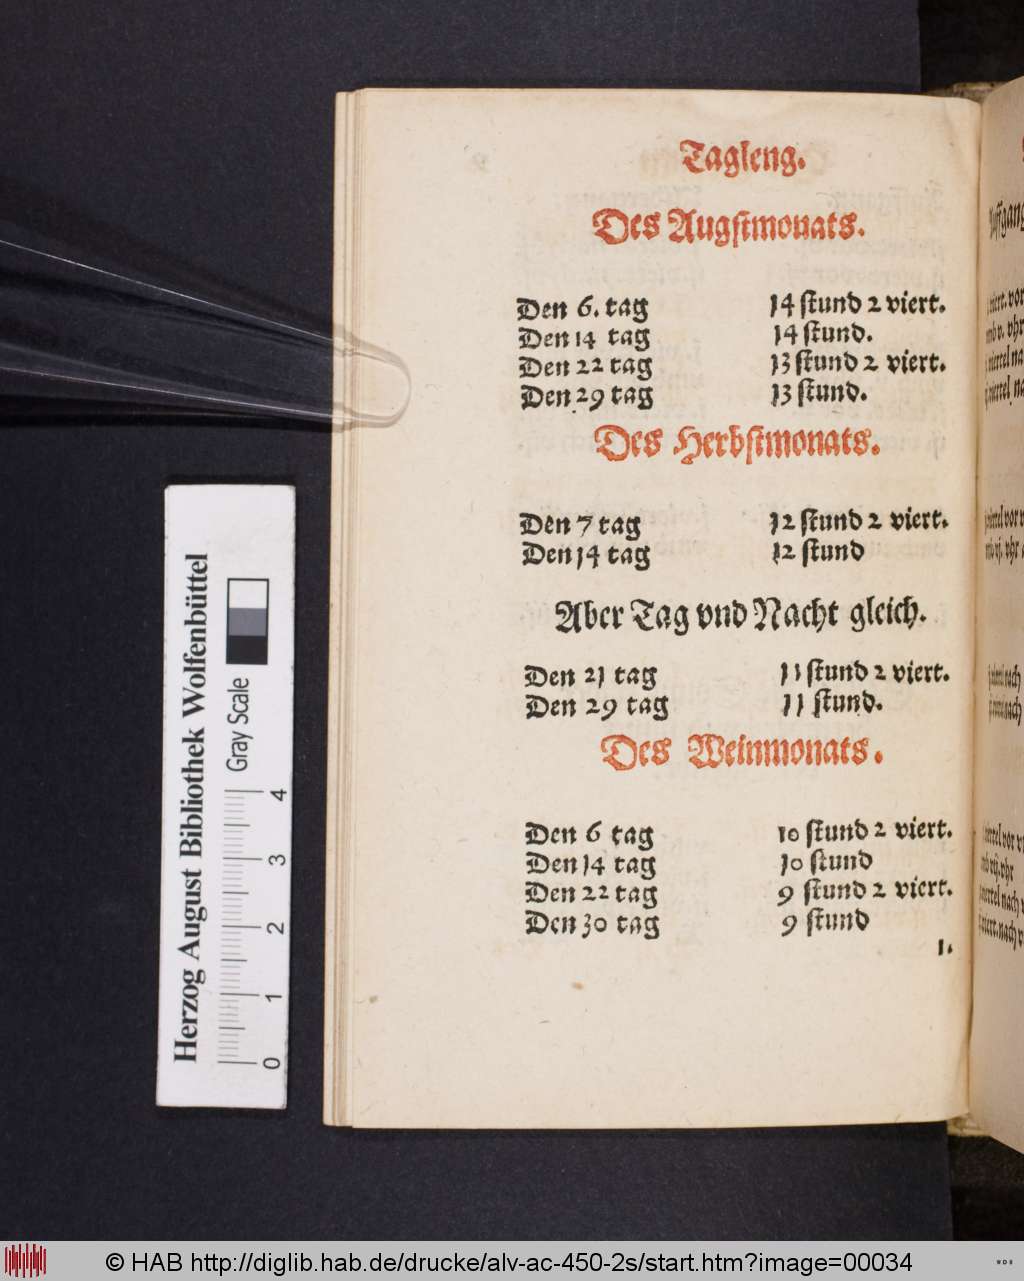 Tagleng.
Des Augstmonats.
Den 6. tag 14 stund 2 viert.
Den 14 tag 14 stund.
Den 22 tag 13 stund 2 viert.
Den 29 tag 13 stund.
Des Herbstmonats.
Den 7 tag 12 stund 2 viert.
Den 14 tag 12 stund
Aber Tag vnd Nacht gleich.
Den 21 tag 11 stund 2 viert.
Den 29 tag 11 stund.
Des Weinmonats.
Den 6 tag 10 stund 2 viert.
Den 14 tag 10 stund
Den 22 tag 9 stund 2 viert.
Den 30 tag 9 stund
1.
Herzog August Bibliothek Wolfenbüttel
Gray Scale
0 1 2 3 4
© HAB http://diglib.hab.de/drucke/alv-ac-450-2s/start.htm?image=00034